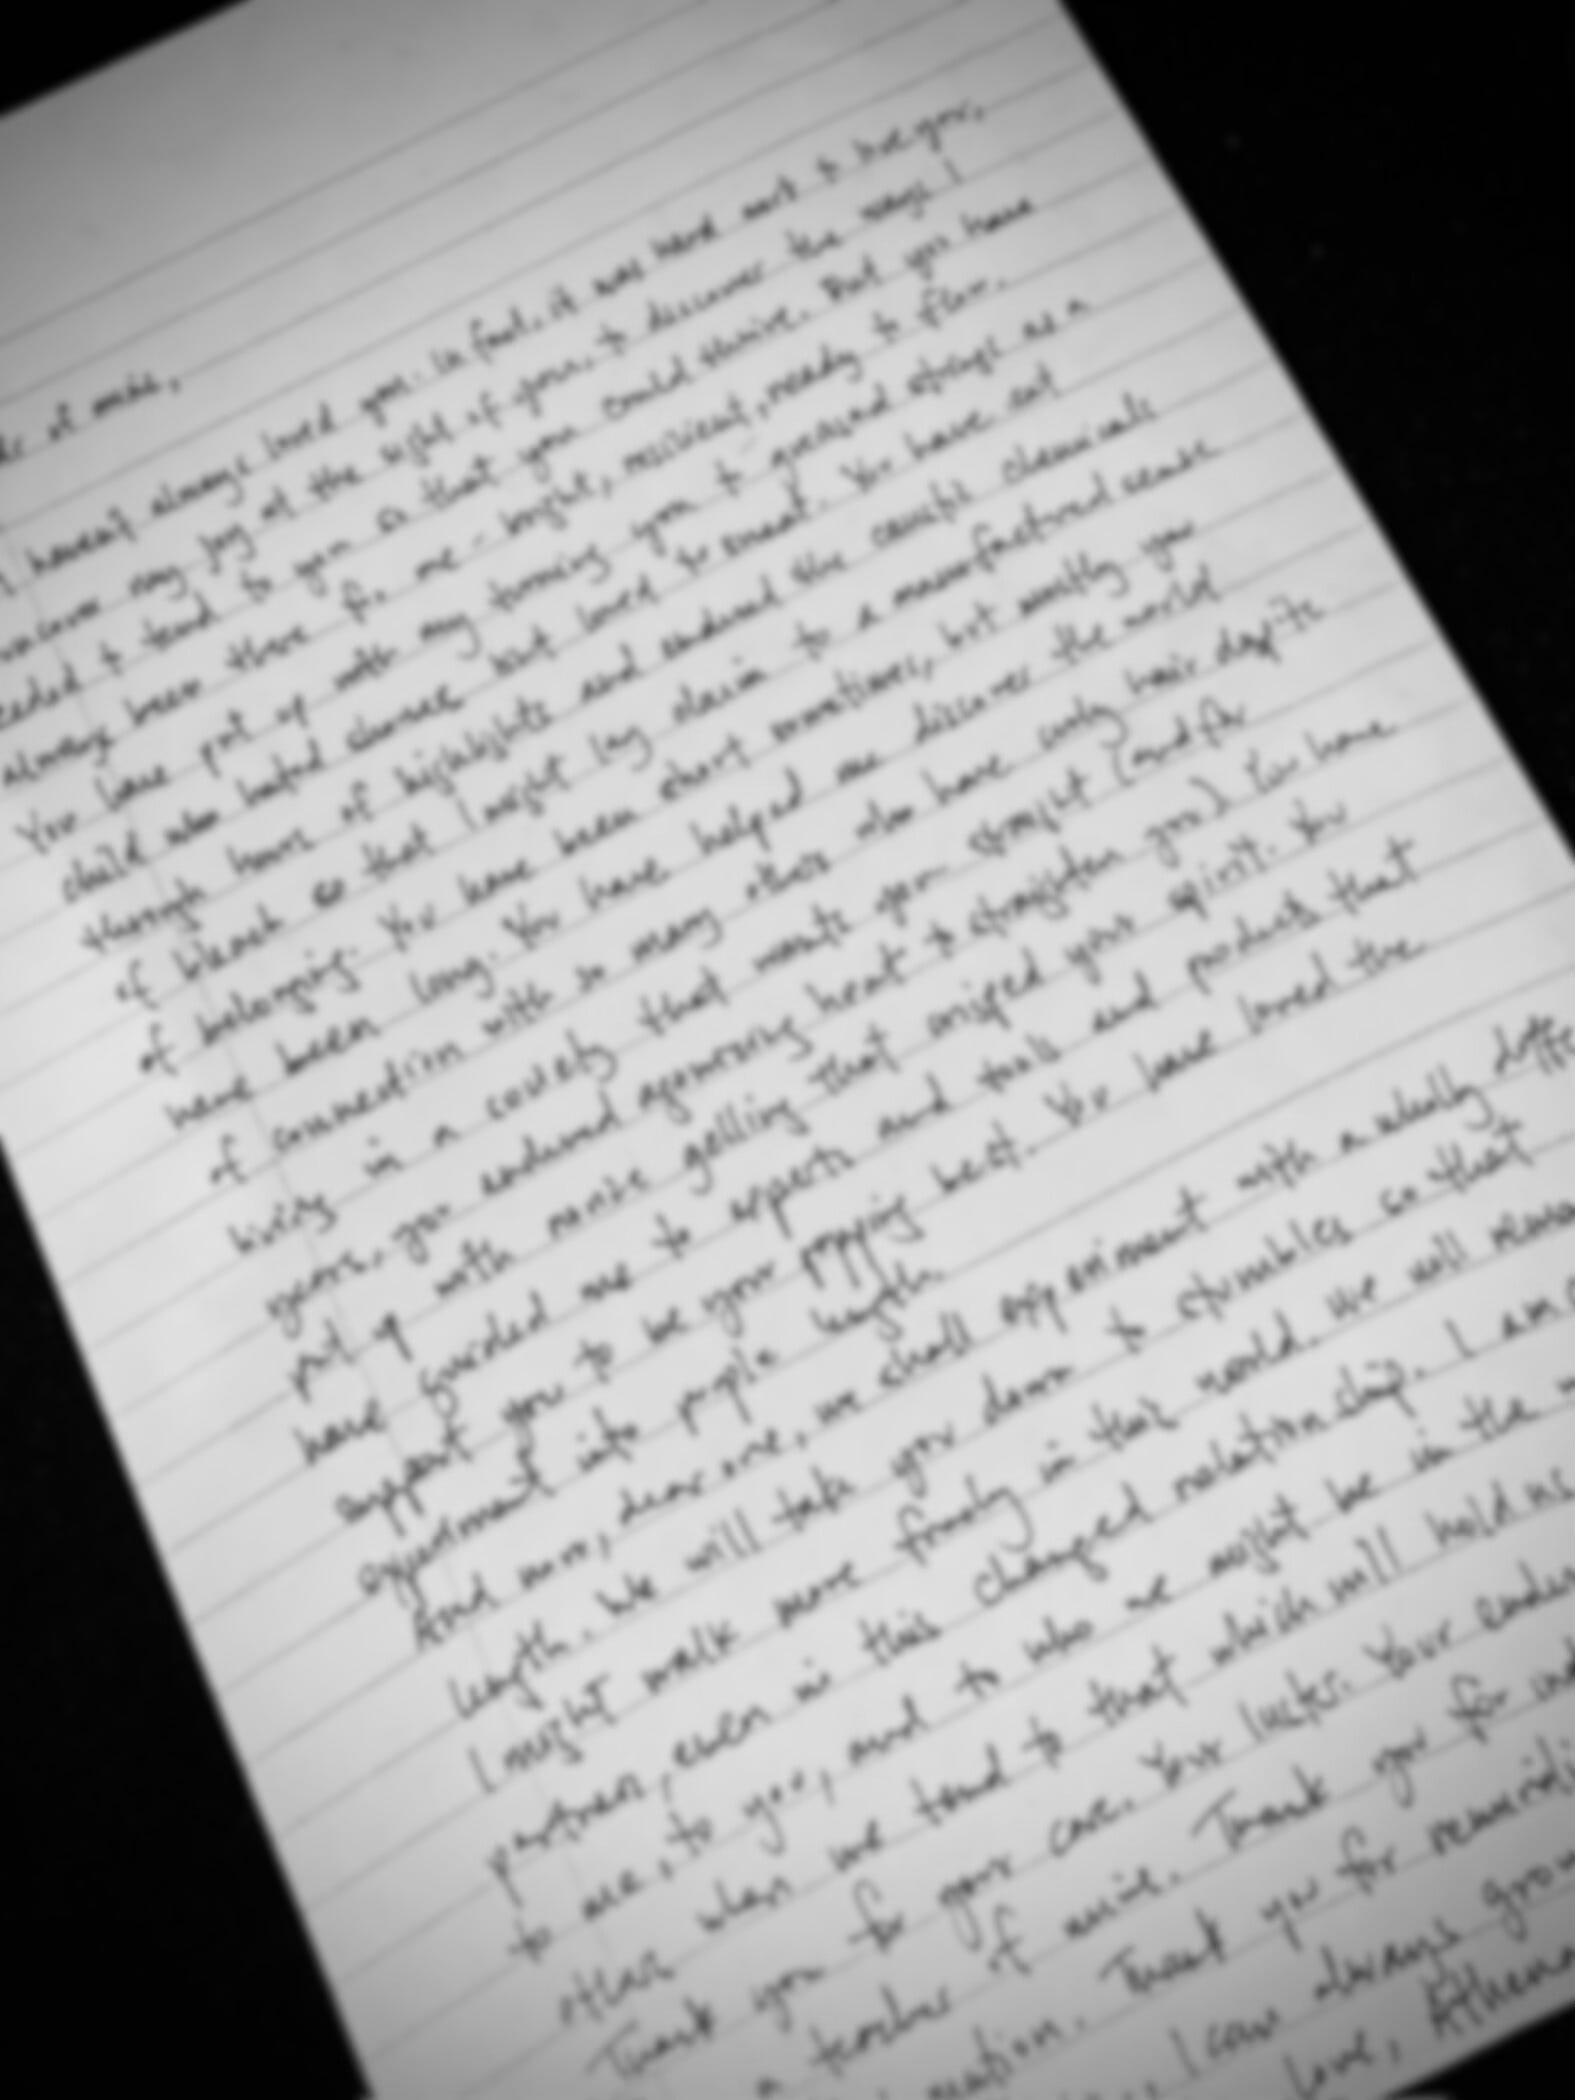 of mine,
I haven't always loved you. In fact, it was hard work to love you,
my joy at the sight of you, to discover the ways I
needed to tend to you so that you could thrive. But you have
always been there for me - bright, resilient, ready to
You have put up with my turning you to greased strings as a
child who hated shower but loved to sweat. You have sat
through hours of highlights and endured the caustic chemicals
of bleach so that I might lay claim to a manufactured sense
of belonging. You have been short sometimes, but mostly you
have been long. You have helped me discover the world
of connection with so many others who have curly hair despite
living in a society that wants you straight (and for
years, you endured agonizing heat to straighten you). You have
put up with gelling that your spirit. You
have guided me to experts and tools and products that
support you to be your best. You have loved the
experiment into purple length.
And now, dear one, we shall experiment with a wholly
length. We will take you down to stumbles so that
I might walk more freely in this world. We will
partners, even in this changed relationship. I am
to me, to you, and to who we might be in the
other when we tend to that which will hold us
Thank you for your care. Your luster. Your
a teacher of mine. Thank you for
Thank you for
I can always
Love, Athena